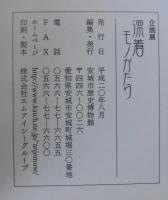 企画展
漂着モノがたり
発行日　平成二〇年八月
編集・発行　安城市歴史博物館
〒四四六-〇〇二六
愛知県安城市安城町城堀三〇番地
電話　〇五六六-七七-六六五五
FAX　〇五六六-七七-六六〇〇
ホームページ　http://www.katch.ne.jp/~anjomuse/
印刷・製本　株式会社エムアイシーグループ